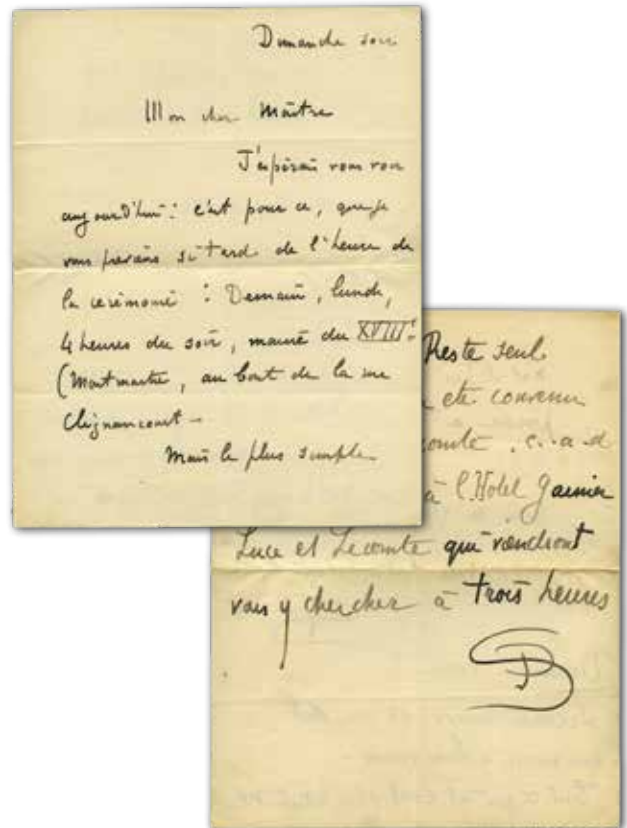 Dimanche soir
Mon cher Maître
J'espérais vous voir
aujourd'hui : c'est pour ce, que je
vous préviens si tard de l'heure de
la cérémonie : Demain, lundi,
4 heures du soir, mairie du XVIIIe
(Montmartre, au bout de la rue
Clignancourt –
Mais le plus simple
Reste seul
été convenu
comte, c. a d
à l'Hotel Garnier
Luce et Lecomte qui viendront
vous y chercher à trois heures